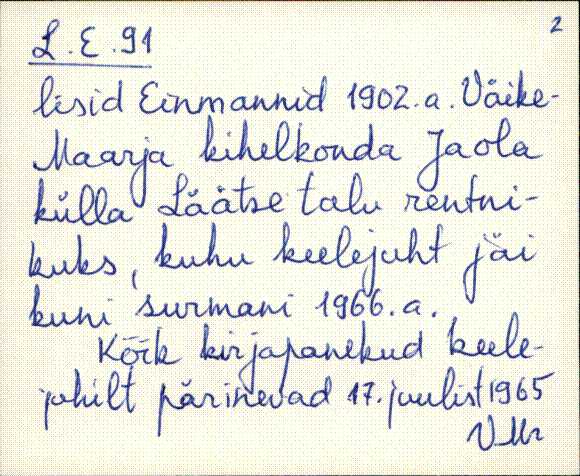 2
L.E.91
lisid Einmannid 1902.a. Väike-
Maarja kihelkonda Jaola
külla Läätse talu rentni-
kuks, kuhu keelejuht jäi
kuni surmani 1966.a.
Kõik kirjapanekud keele-
juhilt pärinevad 17. juulist 1965